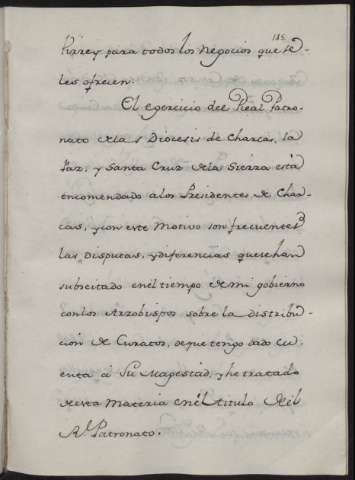 185.
Virrey para todos los Negocios que se
les ofrecen.
El egercicio del Real Patro-
nato de las Diocesis de Charcas, la
Paz, y Santa Cruz de la Sierra está
encomendado alos Presidentes de Char-
cas, y con este Motivo son frecuentes
las Disputas, y diferencias que se han
subscitado en el tiempo de mi gobierno
con los Arzobispos sobre la distribu-
cion de Curatos, de que tengo dado cu-
enta á Su Magestad, y he tratado
de esta Materia en el titulo del
Rl. Patronato.